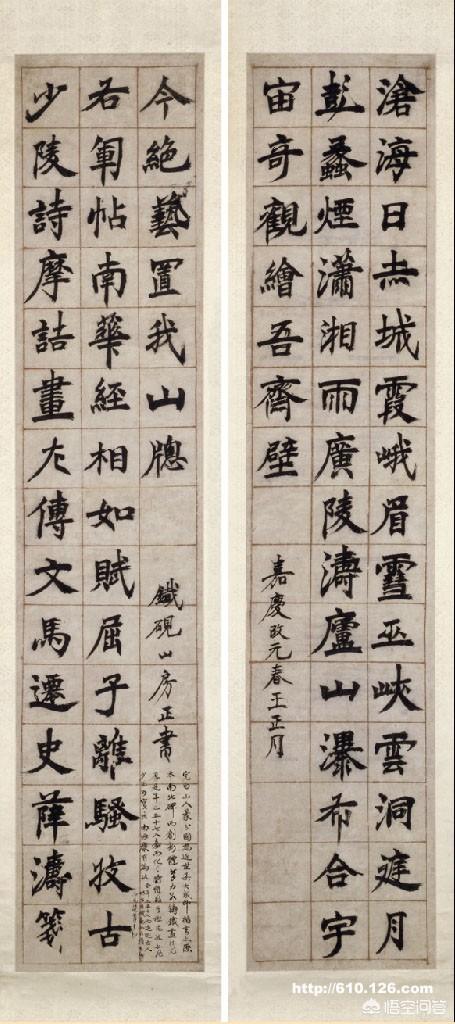 滄海日赤城霞峨眉雪巫峽雲洞庭月
彭蠡煙瀟湘雨廣陵濤廬山瀑布合宇
宙奇觀繪吾齋壁
嘉慶改元春王正月
少陵詩摩詰畫左傳文馬遷史薛濤箋
右軍帖南華經相如賦屈子離騷收古
今絕藝置我山牕
鐵硯山房正書
http://610.126.com
悟空问答